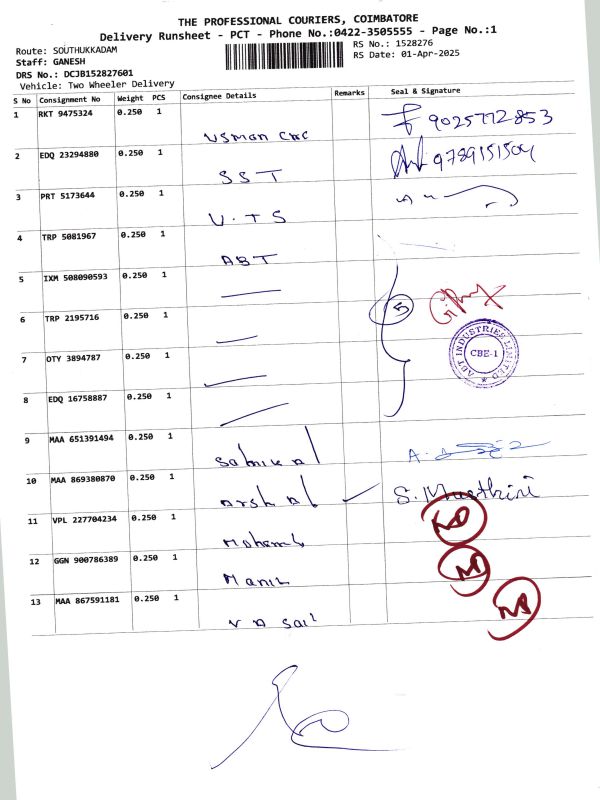 THE PROFESSIONAL COURIERS, COIMBATORE
Delivery Runsheet - PCT - Phone No.:0422-3505555 - Page No.:1
Route: SOUTHUKKADAM RS No.: 1528276
Staff: GANESH RS Date: 01-Apr-2025
DRS No.: DCJB152827601
Vehicle: Two Wheeler Delivery
S No Consignment No Weight PCS Consignee Details Remarks Seal & Signature
1 RKT 9475324 0.250 1 9025772853
2 EDQ 23294880 0.250 1 SST 9789151504
3 PRT 5173644 0.250 1 U.TS
4 TRP 5081967 0.250 1 ABT
5 IXM 508090593 0.250 1
6 TRP 2195716 0.250 1 5
7 OTY 3894787 0.250 1 ABT INDUSTRIES LIMITED CBE-1
8 EDQ 16758887 0.250 1
9 MAA 651391494 0.250 1
10 MAA 869380870 0.250 1
11 VPL 227704234 0.250 1
12 GGN 900786389 0.250 1
13 MAA 867591181 0.250 1